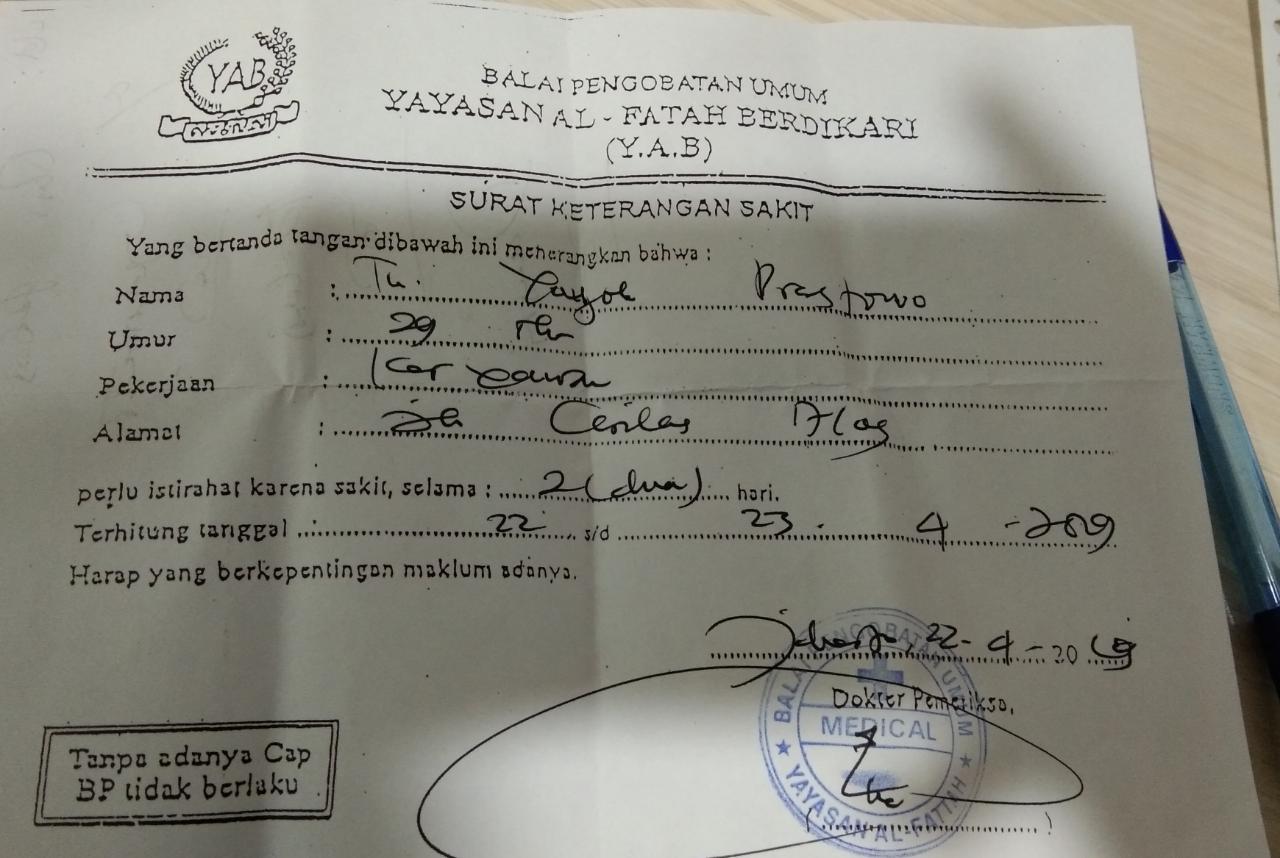 YAB
BALAI PENGOBATAN UMUM
YAYASAN AL - FATAH BERDIKARI
(Y.A.B)
SURAT KETERANGAN SAKIT
Yang bertanda tangan dibawah ini menerangkan bahwa :
Nama : Tn. Yayok Prastowo
Umur : 29 thn
Pekerjaan : Karyawan
Alamat : Jln
perlu istirahat karena sakit, selama : 2 (dua) hari.
Terhitung tanggal : 22 s/d 23 - 4 - 2019
Harap yang berkepentingan maklum adanya.
Jakarta, 22 - 4 - 20 19
Dokter Pemeriksa,
BALAI PENGOBATAN UMUM
MEDICAL
YAYASAN AL-FATTAH
Tanpa adanya Cap
BP tidak berlaku